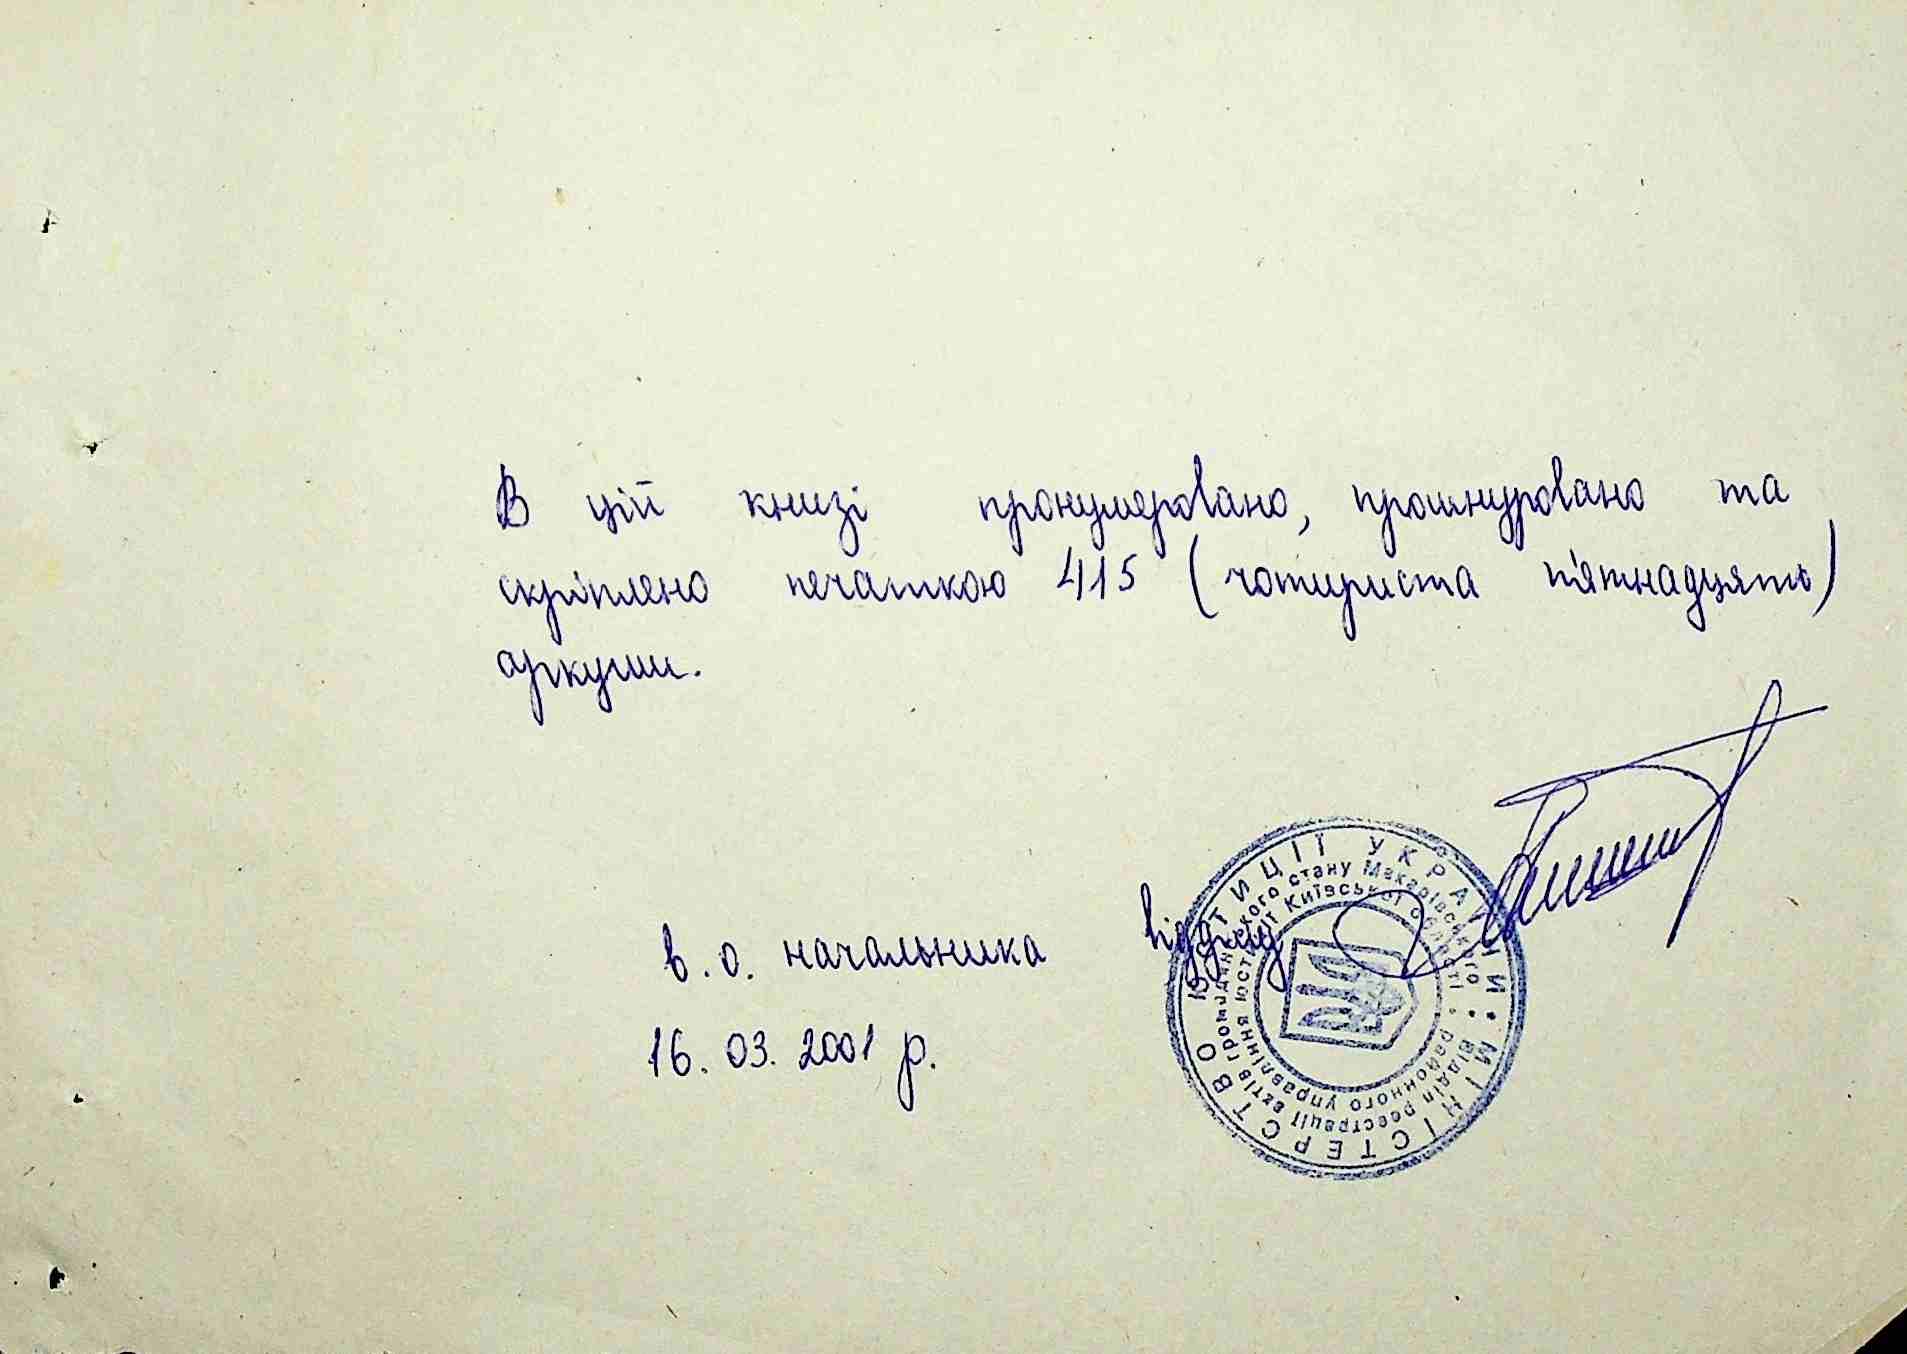 В цій книзі пронумеровано, прошнуровано та
скріплено печаткою 415 (чотириста п'ятнадцять)
аркуши.
в.о. начальника відділу
16.03.2001 р.
МІНІСТЕРСТВО ЮСТИЦІЇ УКРАЇНИ *
Відділ реєстрації актів громадянського стану Макарівського *
районного управління юстиції Київської області *